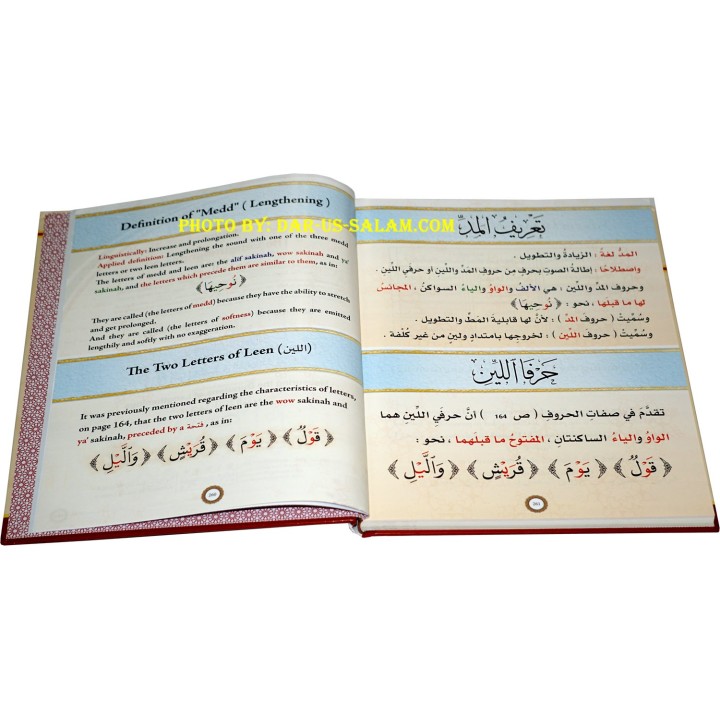 Definition of "Medd" ( Lengthening )
PHOTO BY: DAR-US-SALAM.COM
Linguistically: Increase and prolongation.
Applied definition: Lengthening the sound with one of the three medd
letters or two leen letters.
The letters of medd and leen are: the alif sakinah, wow sakinah and ya'
sakinah, and the letters which precede them are similar to them, as in:
﴿نُوحِيهَا﴾
They are called (the letters of medd) because they have the ability to stretch
and get prolonged.
And they are called (the letters of softness) because they are emitted
lengthily and softly with no exaggeration.
The Two Letters of Leen (اللين)
It was previously mentioned regarding the characteristics of letters,
on page 164, that the two letters of leen are the wow sakinah and
ya' sakinah, preceded by a فتحة , as in:
﴿قَوْلٌ﴾ ﴿يَوْمَ﴾ ﴿قُرَيْشٍ﴾ ﴿وَالَّيْلِ﴾
تَعْرِيفُ المَدِّ
المَدُّ لغة : الزيادةُ والتطويل .
واصطلاحًا : إطالةُ الصوتِ بحرفٍ من حروف المَدِّ واللِّينِ أو حرفي اللِّين .
وحروف المدِّ واللِّين ، هي الألف والواوُ والياءُ السواكنُ ، المجانسُ
لها ما قبلها ، نحو : ﴿نُوحِيهَا﴾
وسُمِّيتْ ( حروف المدّ ) : لأنَّ لها قابلية المَطِّ والتطويل .
وسُمِّيتْ ( حروف اللّين ) : لخروجها بامتدادٍ ولينٍ من غير كُلْفة .
حَرْفَا اللِّين
تقدَّمَ في صفات الحروفِ ( ص 164 ) أنَّ حرفَي اللِّينِ هما
الواوُ والياءُ الساكنتان ، المفتوحُ ما قبلهما ، نحو :
﴿قَوْلٌ﴾ ﴿يَوْمَ﴾ ﴿قُرَيْشٍ﴾ ﴿وَالَّيْلِ﴾